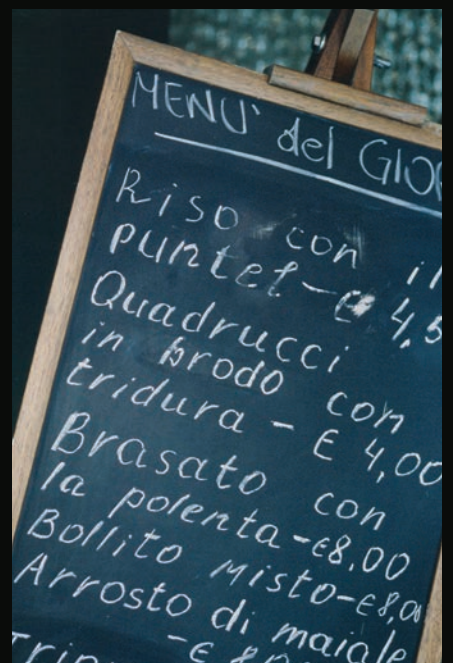 MENU' del GIO
Riso con il
puntel-€ 4,5
Quadrucci
in brodo con
tridura - € 4,00
Brasato con
la polenta-€8,00
Bollito Misto-€8,00
Arrosto di maiale
-€